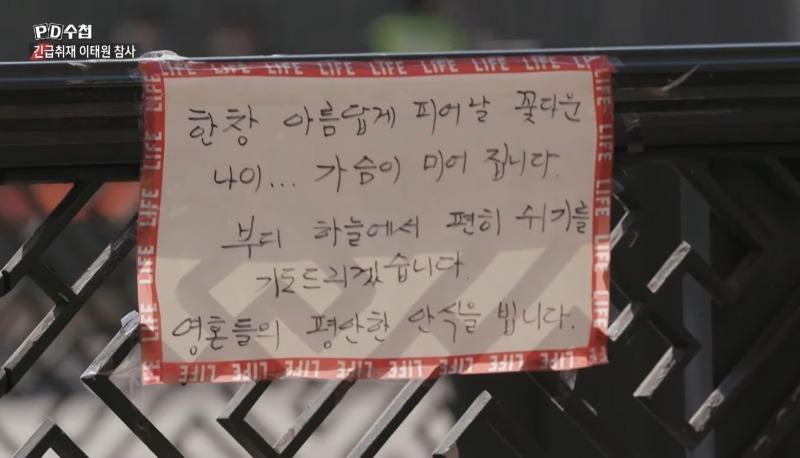 PD수첩
긴급취재 이태원 참사
LIFE LIFE LIFE LIFE LIFE LIFE LIFE LIFE
한창 아름답게 피어날 꽃다운
나이... 가슴이 미어 집니다.
부디 하늘에서 편히 쉬기를
기도드리겠습니다.
영혼들의 평안한 안식을 빕니다.
LIFE LIFE LIFE LIFE LIFE LIFE LIFE